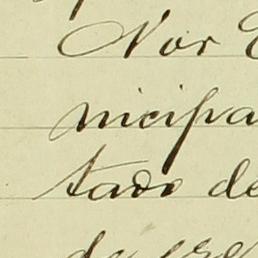 Nor
nicipa
tado de
de cre